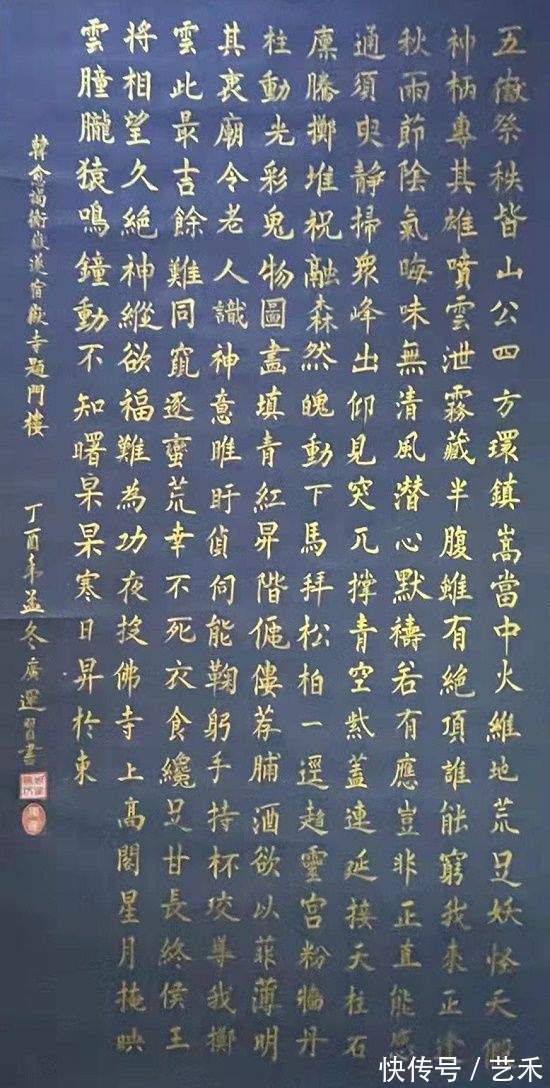 五嶽祭秩皆山公四方環鎮嵩當中火維地荒足妖怪天假
神柄專其雄噴雲泄霧藏半腹雖有絕頂誰能窮我來正逢
秋雨節陰氣晦昧無清風潛心默禱若有應豈非正直能感
通須臾靜掃眾峰出仰見突兀撐青空紫蓋連延接天柱石
廩騰擲堆祝融森然魄動下馬拜松柏一逕趨靈宮粉牆丹
柱動光彩鬼物圖畫填青紅昇階傴僂荐脯酒欲以菲薄明
其衷廟令老人識神意睢盱偵伺能鞠躬手持杯珓導我擲
雲此最吉餘難同竄逐蠻荒幸不死衣食纔足甘長終侯王
将相望久絕神縱欲福難為功夜投佛寺上高閣星月掩映
雲朣朧猿鳴鐘動不知曙杲杲寒日昇於東
韓愈謁衡嶽遂宿嶽寺題門樓
丁酉年孟冬廣運習書
快传号/艺禾